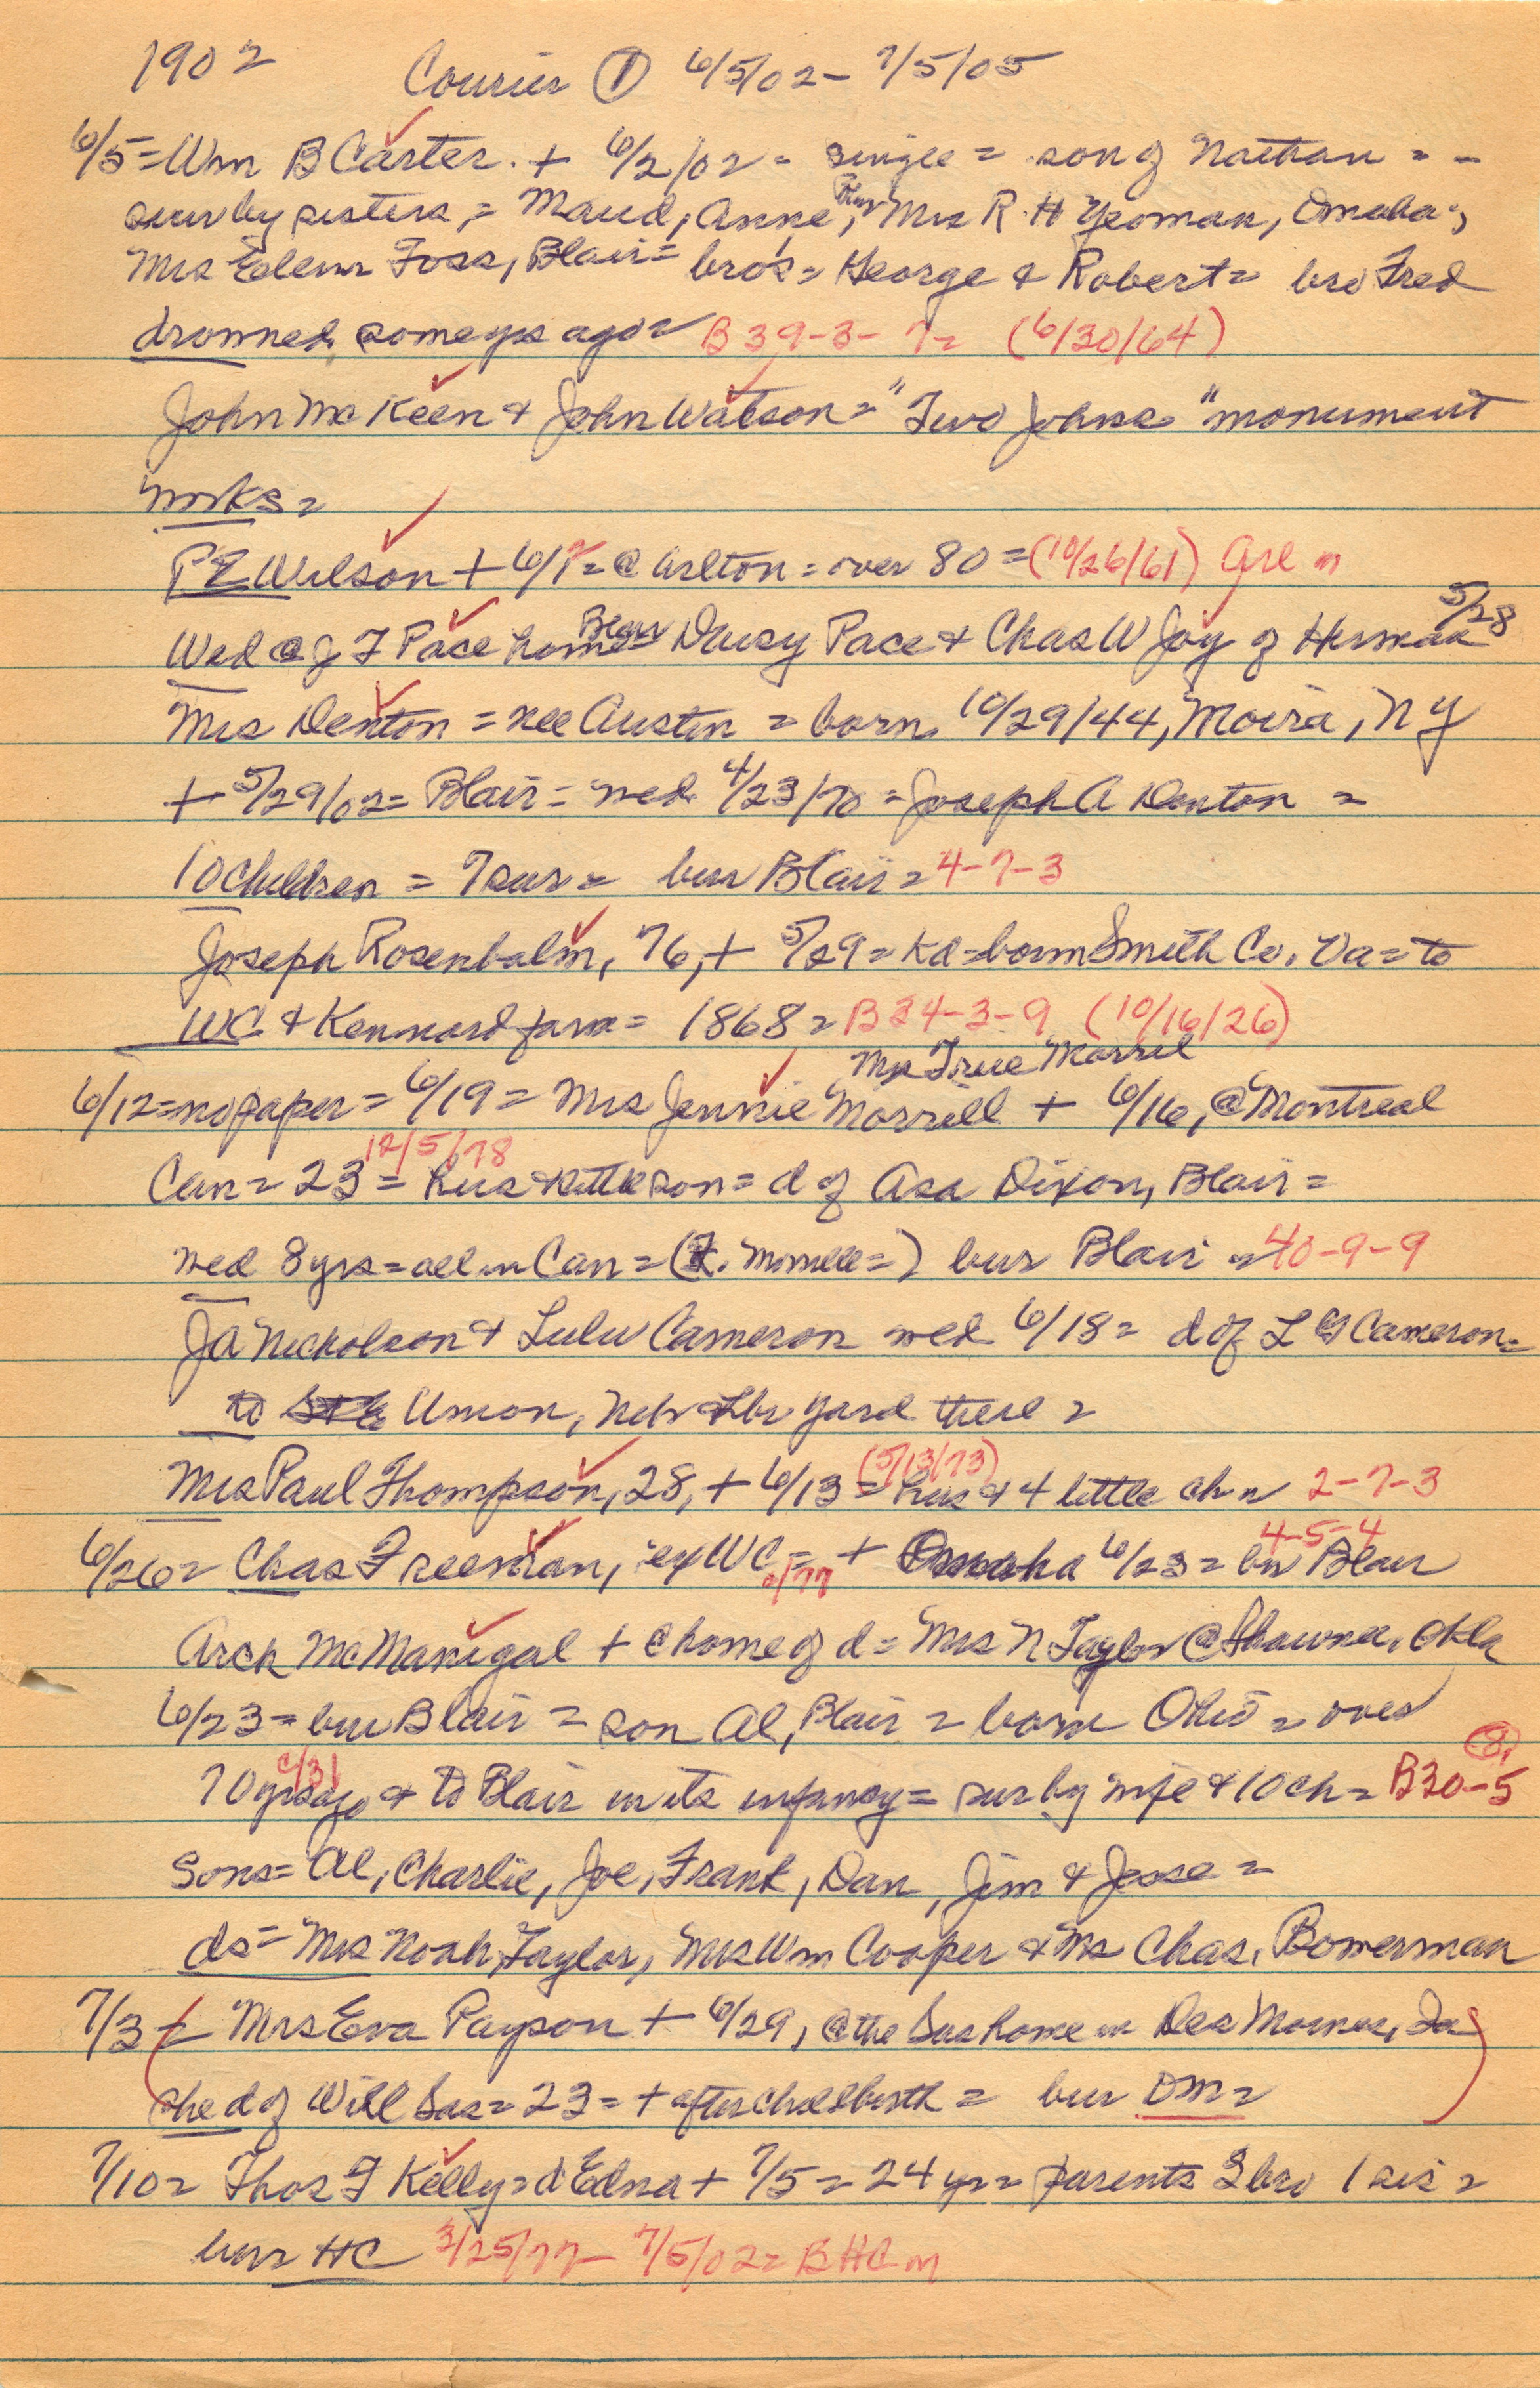 1902 Courier ① 6/5/02 - 7/5/05
6/5 = Wm B Carter + 6/2/02 = single = son of Nathan = -
sur by sisters = Maud, Anne, Mrs R H Yeoman, Omaha;
Mrs Foss, Blair = bro's = George & Robert = bro Fred
drowned some yrs ago = B 39-3-7 = (6/30/64)
John McKeen & John Watson = "Two Johns" monument
works =
P E Wilson + 6/1 = @ Arlton = over 80 = (10/26/61) Arl
Wed @ J F Pace home Blair Daisy Pace & Chas W Joy of Herman 5/28
Mrs Denton = nee Austin = born 10/29/44, Moira, N Y
+ 5/29/02 = Blair = wed 4/23/70 = Joseph A Denton =
10 children = 7 sur = bur Blair = 4-7-3
Joseph Rosenbalm, 76, + 5/29 = Kd = born Smith Co. Va = to
WC & Kennard farm = 1868 = B 34-3-9 (10/16/26)
Mrs True Morrel
6/12 = no paper = 6/19 = Mrs Jennie Morrell + 6/16, @ Montreal
12/5/78
Can = 23 = hus & little son = d of Asa Dixon, Blair =
wed 8 yrs = all in Can = bur Blair = 40-9-9
J A Nickolson & Lulu Cameron wed 6/18 = d of L G Cameron =
to Union, Neb & Lbr yard there =
(5/13/73)
Mrs Paul Thompson, 28, + 6/13 = hus & 4 little ch = 2-7-3
4-5-4
6/26 = Chas Freeman, ex WC = + Omaha 6/23 = bur Blair
Arch McManigal + @ home of d = Mrs N Taylor @ Shawnee, Okla
6/23 = bur Blair = son Al, Blair = born Ohio = over
c/31
70 yrs ago & to Blair in its infancy = sur by wife & 10 ch = B30-5 (8)
Sons = Al, Charlie, Joe, Frank, Dan, Jim & Jesse =
ds = Mrs Noah Taylor, Mrs Wm Cooper & Mrs Chas. Bowerman
7/3 = Mrs Eva Payson + 6/29, @ the Sas home in Des Moines, Ia
she d of Will Sas = 23 = + after childbirth = bur DM =
7/10 = Thos F Kelly = d Edna + 7/5 = 24 yr = parents 2 bro 1 sis =
bur HC 3/25/77 - 7/5/02 = B HC